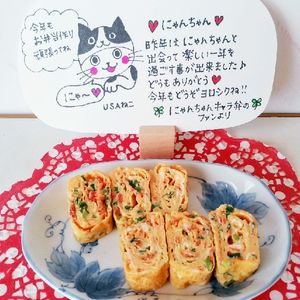 今年も
お弁当作り
頑張ってね
にゃん〜♥
USAねこ
♥にゃんちゃん♥
昨年は にゃんちゃんと
出会って 楽しい一年を
過ごす事が出来ました♪
どうもありがとう♥
今年もどうぞヨロシクね!!
にゃんちゃんキャラ弁の
ファンより